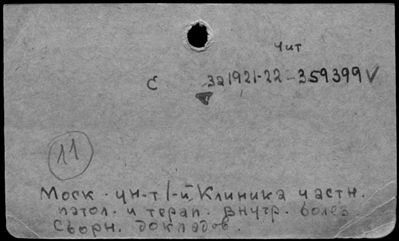 Чит
С за 1921-22 - 359399 V
11
Моск. ун-т I-й Клиника частн.
патол. и терап. внутр. болез.
Сборн. докладов.